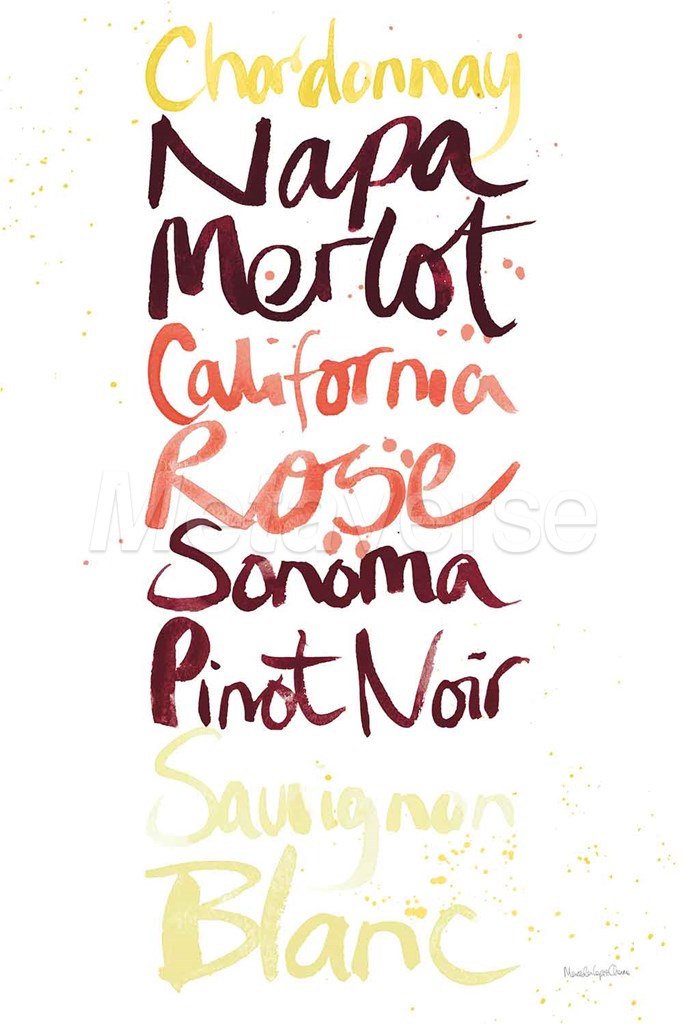 Chardonnay
Napa
Merlot
California
Rose
Metaverse
Sonoma
Pinot Noir
Sauvignon
Blanc